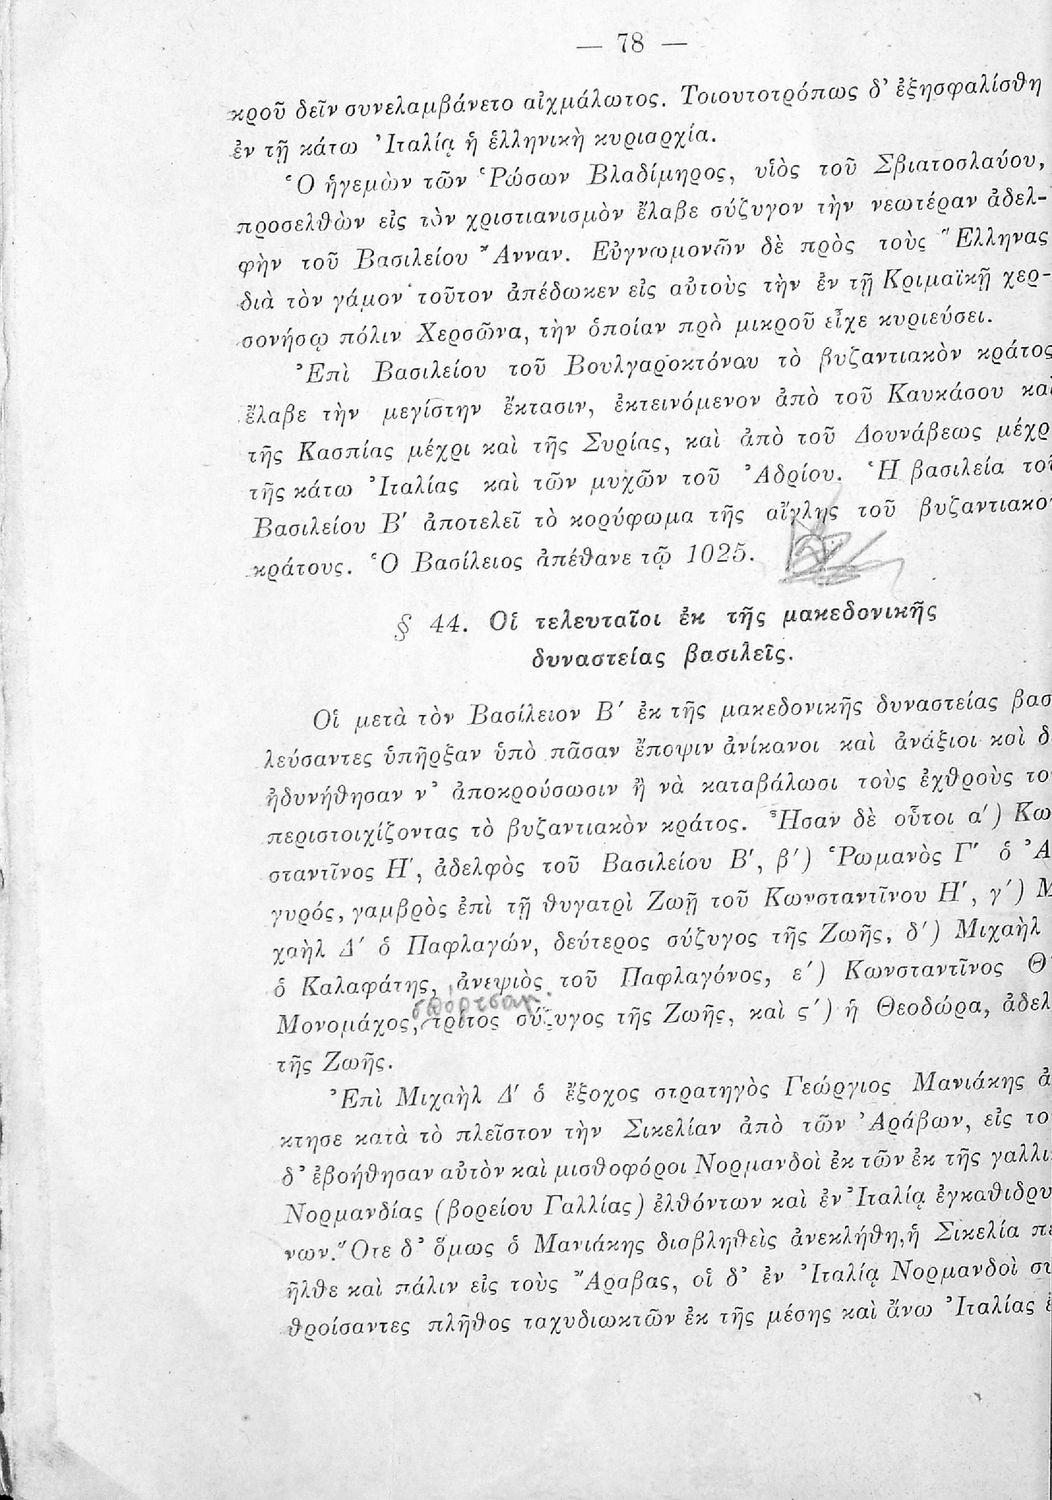 — 78 —
κροῦ δεῖν συνελαμβάνετο αἰχμάλωτος. Τοιουτοτρόπως δ' ἐξησφαλίσθη
ἐν τῇ κάτω Ἰταλίᾳ ἡ ἑλληνικὴ κυριαρχία.
Ὁ ἡγεμὼν τῶν Ῥώσων Βλαδίμηρος, υἱὸς τοῦ Σβιατοσλαύου,
προσελθὼν εἰς τὸν χριστιανισμὸν ἔλαβε σύζυγον τὴν νεωτέραν ἀδελ-
φὴν τοῦ Βασιλείου Ἄνναν. Εὐγνωμονῶν δὲ πρὸς τοὺς Ἕλληνας
διὰ τὸν γάμον τοῦτον ἀπέδωκεν εἰς αὐτοὺς τὴν ἐν τῇ Κριμαϊκῇ χερ-
σονήσῳ πόλιν Χερσῶνα, τὴν ὁποίαν πρὸ μικροῦ εἶχε κυριεύσει.
Ἐπὶ Βασιλείου τοῦ Βουλγαροκτόνου τὸ βυζαντιακὸν κράτος
ἔλαβε τὴν μεγίστην ἔκτασιν, ἐκτεινόμενον ἀπὸ τοῦ Καυκάσου καὶ
τῆς Κασπίας μέχρι καὶ τῆς Συρίας, καὶ ἀπὸ τοῦ Δουνάβεως μέχρ
τῆς κάτω Ἰταλίας καὶ τῶν μυχῶν τοῦ Ἀδρίου. Ἡ βασιλεία τοῦ
Βασιλείου Β' ἀποτελεῖ τὸ κορύφωμα τῆς αἴγλης τοῦ βυζαντιακο
κράτους. Ὁ Βασίλειος ἀπέθανε τῷ 1025.
§ 44. Οἱ τελευταῖοι ἐκ τῆς μακεδονικῆς
δυναστείας βασιλεῖς.
Οἱ μετὰ τὸν Βασίλειον Β' ἐκ τῆς μακεδονικῆς δυναστείας βασ
λεύσαντες ὑπῆρξαν ὑπὸ πᾶσαν ἔποψιν ἀνίκανοι καὶ ἀνάξιοι καὶ δ
ἠδυνήθησαν ν' ἀποκρούσωσιν ἢ νὰ καταβάλωσι τοὺς ἐχθροὺς το
περιστοιχίζοντας τὸ βυζαντιακὸν κράτος. Ἦσαν δὲ οὗτοι α') Κω
σταντῖνος Η', ἀδελφὸς τοῦ Βασιλείου Β', β') Ῥωμανὸς Γ' ὁ Ἀ
γυρός, γαμβρὸς ἐπὶ τῇ θυγατρὶ Ζωῇ τοῦ Κωνσταντίνου Η', γ') Μ
χαὴλ Δ' ὁ Παφλαγών, δεύτερος σύζυγος τῆς Ζωῆς, δ') Μιχαὴλ
ὁ Καλαφάτης, ἀνεψιὸς τοῦ Παφλαγόνος, ε') Κωνσταντῖνος Θ'
Μονομάχος, τρίτος σύζυγος τῆς Ζωῆς, καὶ ς') ἡ Θεοδώρα, ἀδελ
τῆς Ζωῆς.
Ἐπὶ Μιχαὴλ Δ' ὁ ἔξοχος στρατηγὸς Γεώργιος Μανιάκης ἀ
κτησε κατὰ τὸ πλεῖστον τὴν Σικελίαν ἀπὸ τῶν Ἀράβων, εἰς το
δ' ἐβοήθησαν αὐτὸν καὶ μισθοφόροι Νορμανδοὶ ἐκ τῶν ἐκ τῆς γαλλι
Νορμανδίας (βορείου Γαλλίας) ἐλθόντων καὶ ἐν Ἰταλίᾳ ἐγκαθιδρυ
νων. Ὅτε δ' ὅμως ὁ Μανιάκης διαβληθεὶς ἀνεκλήθη, ἡ Σικελία πε
ῆλθε καὶ πάλιν εἰς τοὺς Ἄραβας, οἱ δ' ἐν Ἰταλίᾳ Νορμανδοὶ συ
θροίσαντες πλῆθος ταχυδιωκτῶν ἐκ τῆς μέσης καὶ ἄνω Ἰταλίας